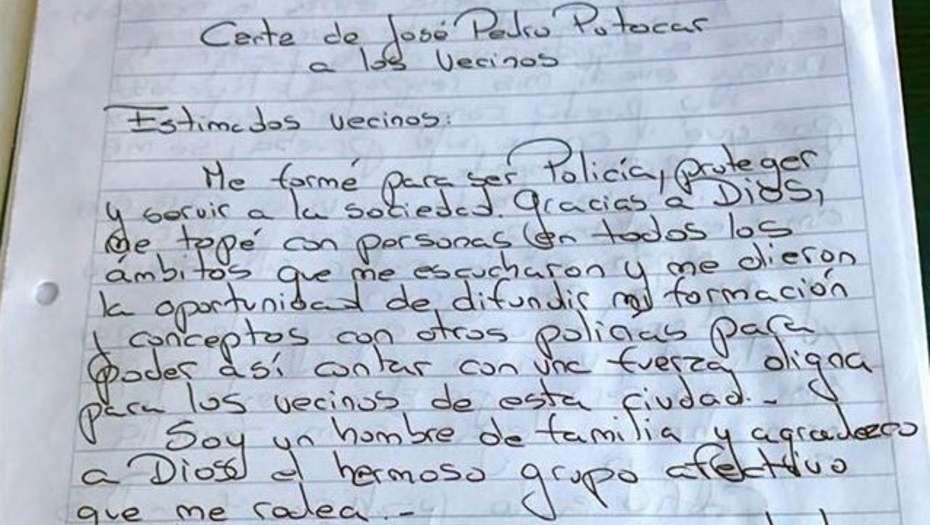 Carta de José Pedro Potocar
a los vecinos
Estimados vecinos:
Me formé para ser Policía, proteger
y servir a la sociedad. Gracias a Dios,
me topé con personas en todos los
ámbitos que me escucharon y me dieron
la oportunidad de difundir mi formación
y conceptos con otros policías para
poder así contar con una fuerza digna
para los vecinos de esta ciudad.-
Soy un hombre de familia y agradezco
a Dios el hermoso grupo afectivo
que me rodea.-